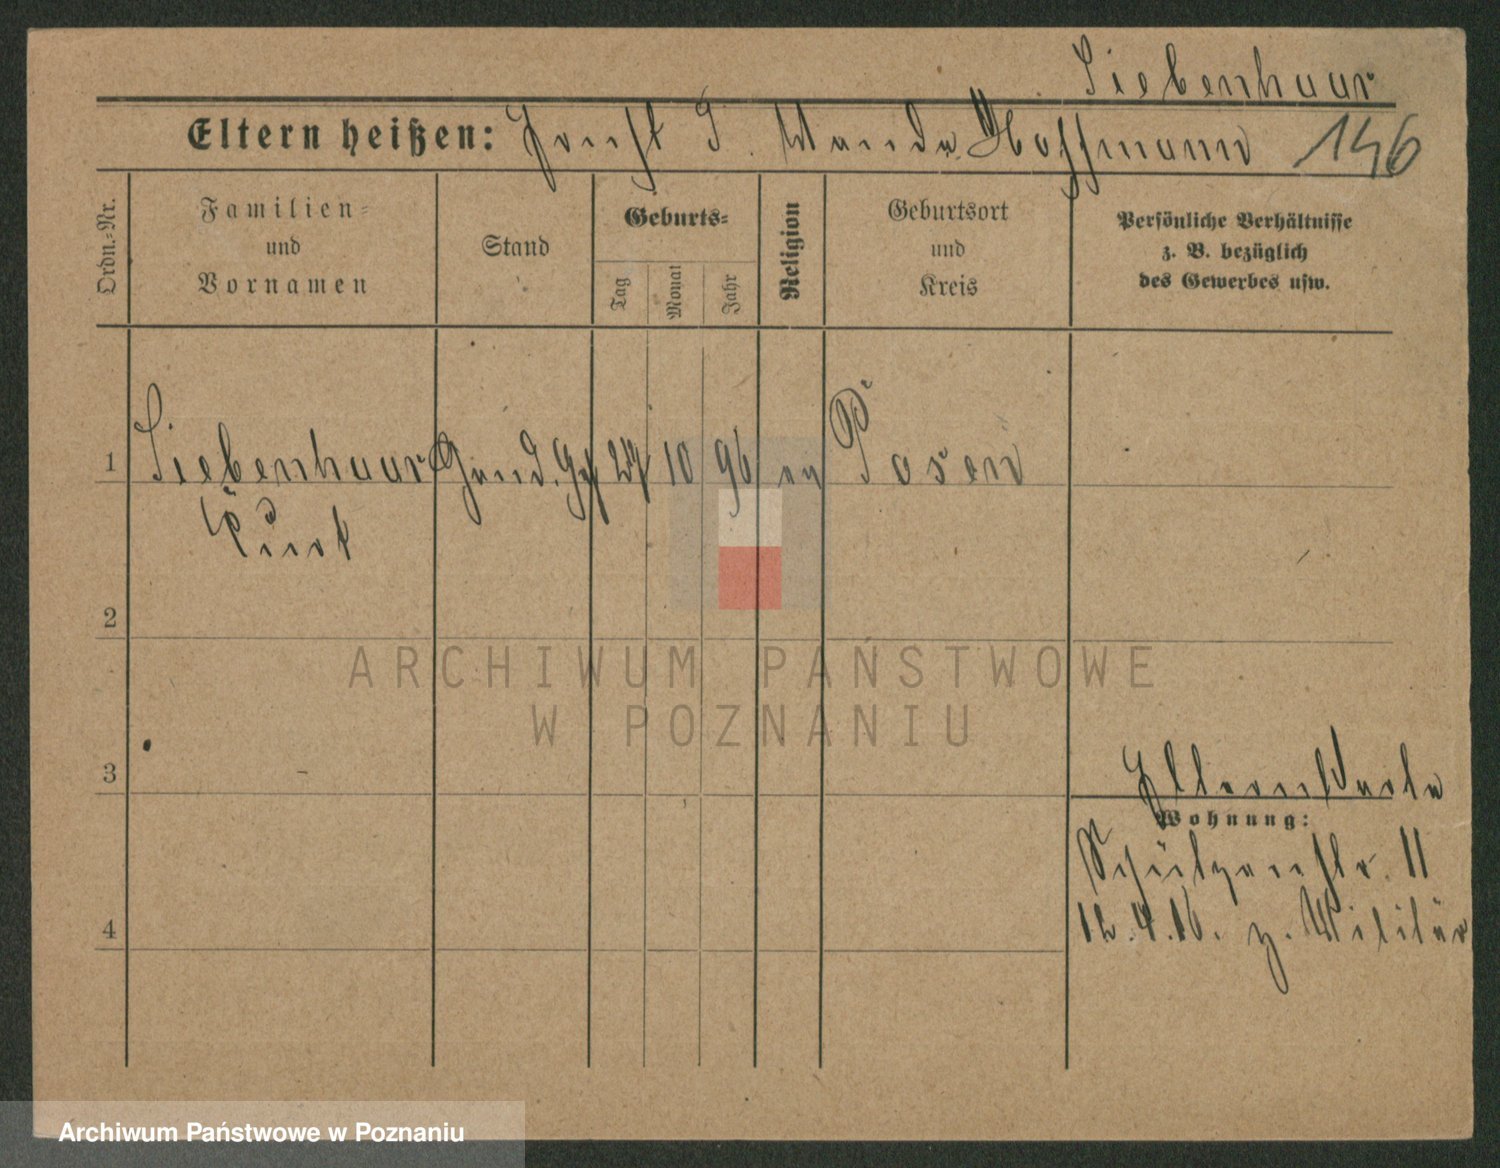 Siebenhaar
Eltern heißen: Ernst S. Wanda Hoffmann 146
Ordn.-Nr.
Familien-
und
Vornamen
Stand
Geburts-
Tag
Monat
Jahr
Religion
Geburtsort
und
Kreis
Persönliche Verhältnisse
z. B. bezüglich
des Gewerbes usw.
1 Siebenhaar 27 10 96 ev Posen
Kurt
2
ARCHIWUM PAŃSTWOWE
W POZNANIU
3
Elternkarte
Wohnung:
Schützenstr. 11
4
12.4.16. z. Militär
Archiwum Państwowe w Poznaniu